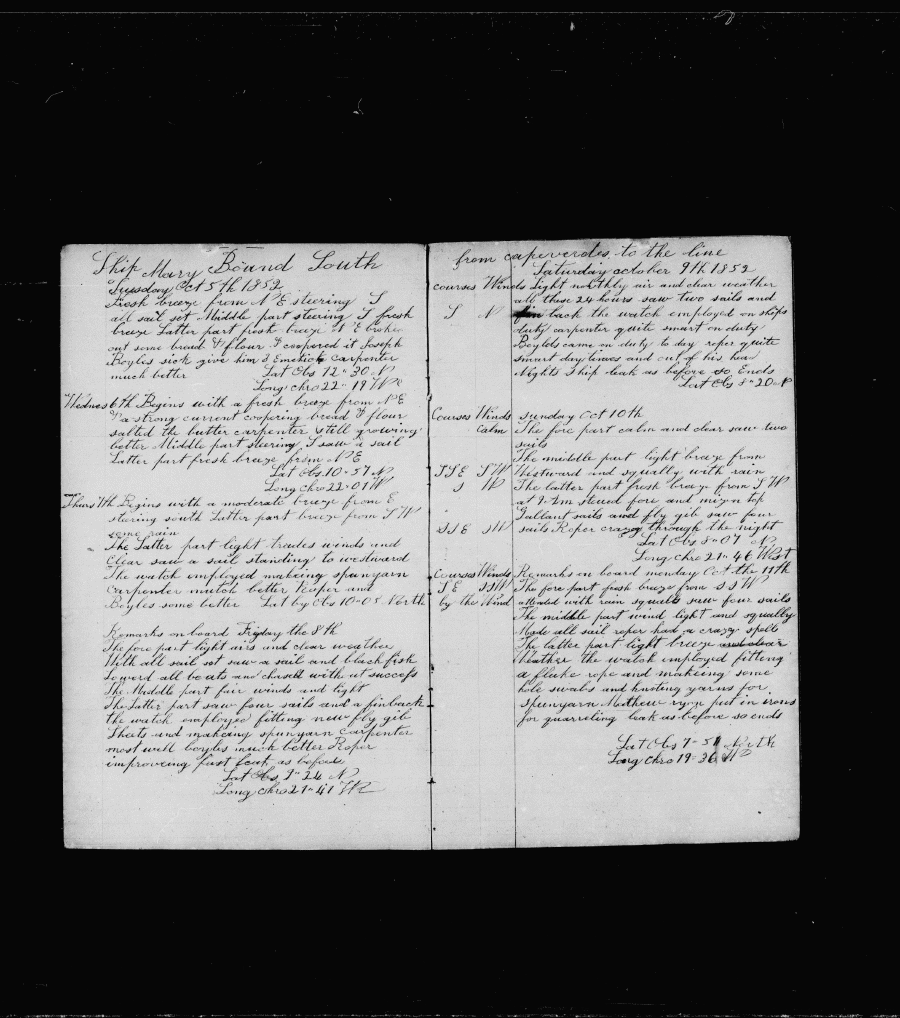 Ship Mary Bound South
Tuesday Oct 5th 1852
Fresh breeze from N E steering S
all sail set Middle part steering S fresh
breeze Latter part fresh breeze N E broke
out some bread & flour & coopered it Joseph
Boyles sick give him a Emetick carpenter
much better Lat Obs 12"30 N
Long chro 22"19 W
Wednes 6th Begins with a fresh breeze from N E
& a strong current coopering bread & flour
salted the butter carpenter still growing
better Middle part steering S saw a sail
Latter part fresh breeze from N E
Lat Obs 10-57 N
Long chro 22-01 W
Thurs 7th Begins with a moderate breeze from E
stering south Latter part breeze from S W
some rain
The Latter part light treades winds and
Clear saw a sail standing to westward
The watch employed makeing spunyarn
Carpender mutch better Roper and
Boyles some better Lat by Obs 10-08 North
Remarks on board Fryday the 8th
The fore part light airs and clear weather
With all sail set saw a sail and black fish
Lowerd all boats and chased without success
The Middle part fair winds and light
The Latter part saw four sails and a finback
the watch employed fitting new fly gib
Sheets and makeing spunyarn carpenter
most well boyles much better Roper
improveing fast leak as before
Lat Obs 9"24 N
Long chro 21"41 W
from capeverdes to the line
Saturday october 9th 1852
courses Winds Light northly air and clear weather
all these 24 hours saw two sails and
S N fin back the watch employed on ships
duty carpenter quite smart on duty
Boyles came on duty to day roper quite
smart day times and out of his head
Nights Ship leak as before so Ends
Lat Obs 8"20 N
Courses Winds Sunday Oct 10th
Calm The fore part calm and clear saw two
sails
The middle part light breeze from
SSE SW Westward and squally with rain
S W The latter part fresh breeze from S W
at 9 Am stowed fore and mizn top
Gallant sails and fly gib saw four
SSE SW sails Roper crazy through the night
Lat Obs 8-07 N
Long chro 21-46 West
Courses Winds Remarks on board monday Oct the 11th
S E SSW The fore part fresh breeze from S S W
by the Wind attended with rain squalls saw four sails
The middle part wind light and squally
Made all sail roper had a crazy spell
The latter part light breeze and clear
Weather the watch employed fitting
a fluke rope and makeing some
hole swabs and knoting yarns for
spunyarn Mathew ryn put in irons
for quarreling leak as before so ends
Lat Obs 7-51 North
Long chro 19-36 W